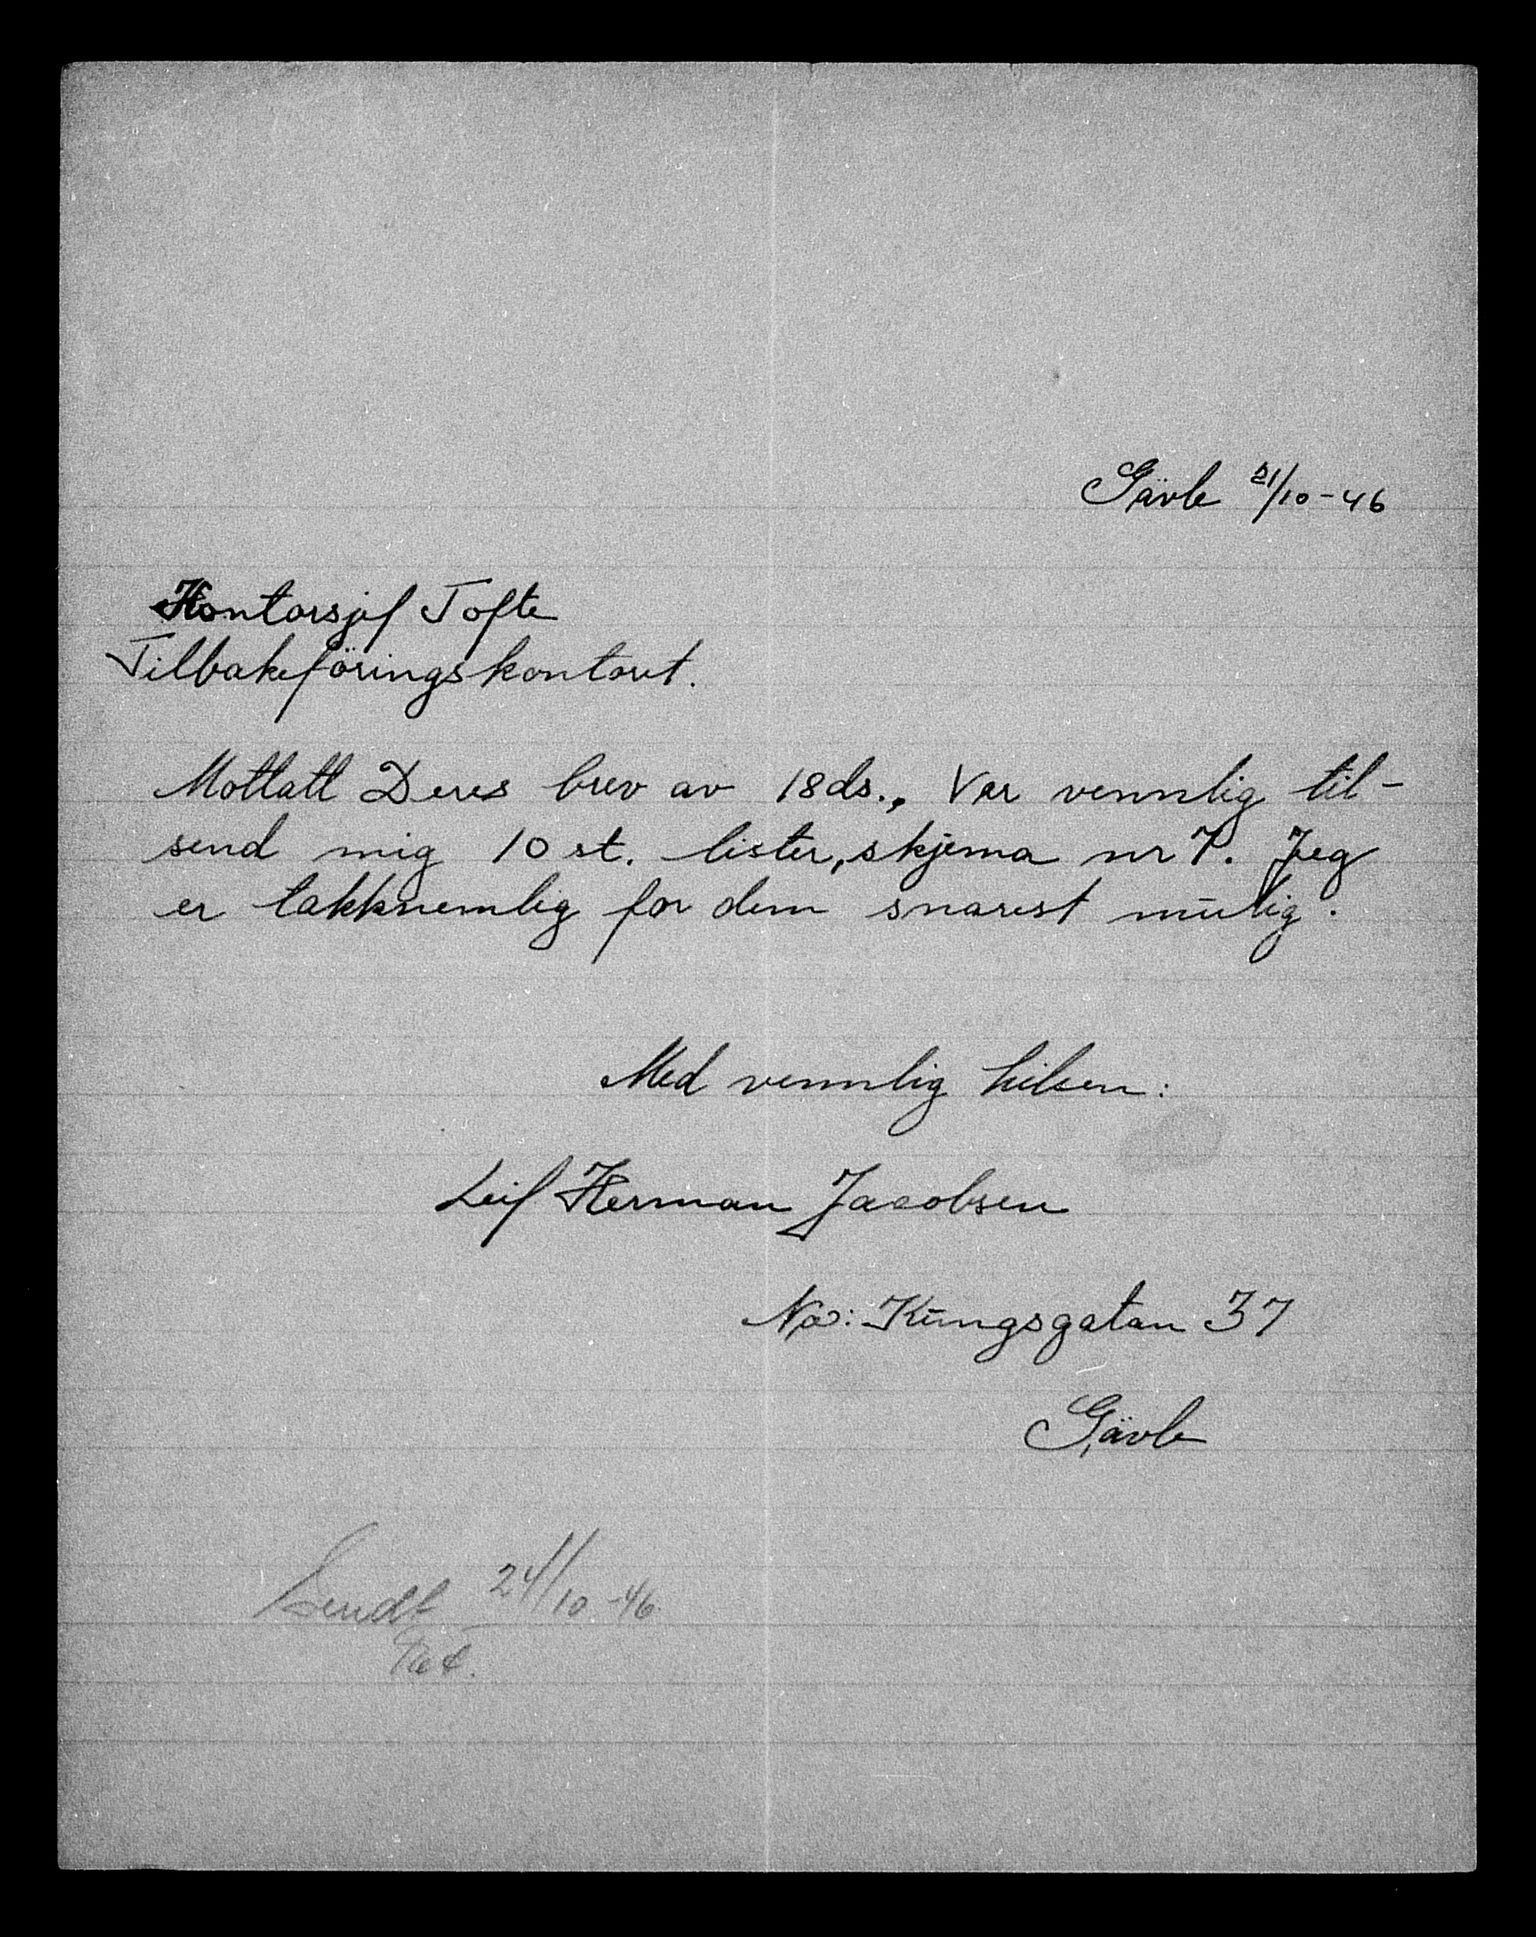 Gävle 21/10-46
Kontorsjef Tofte
Tilbakeföringskontoret.
Mottatt Deres brev av 18ds., Vær vennlig til-
send mig 10 st. lister, skjema nr 7. Jeg
er takknemlig for dem snarest mulig.
Med vennlig hilsen:
Leif Herman Jacobsen
Kungsgatan 37
Gävle
Sendt 24/10-46